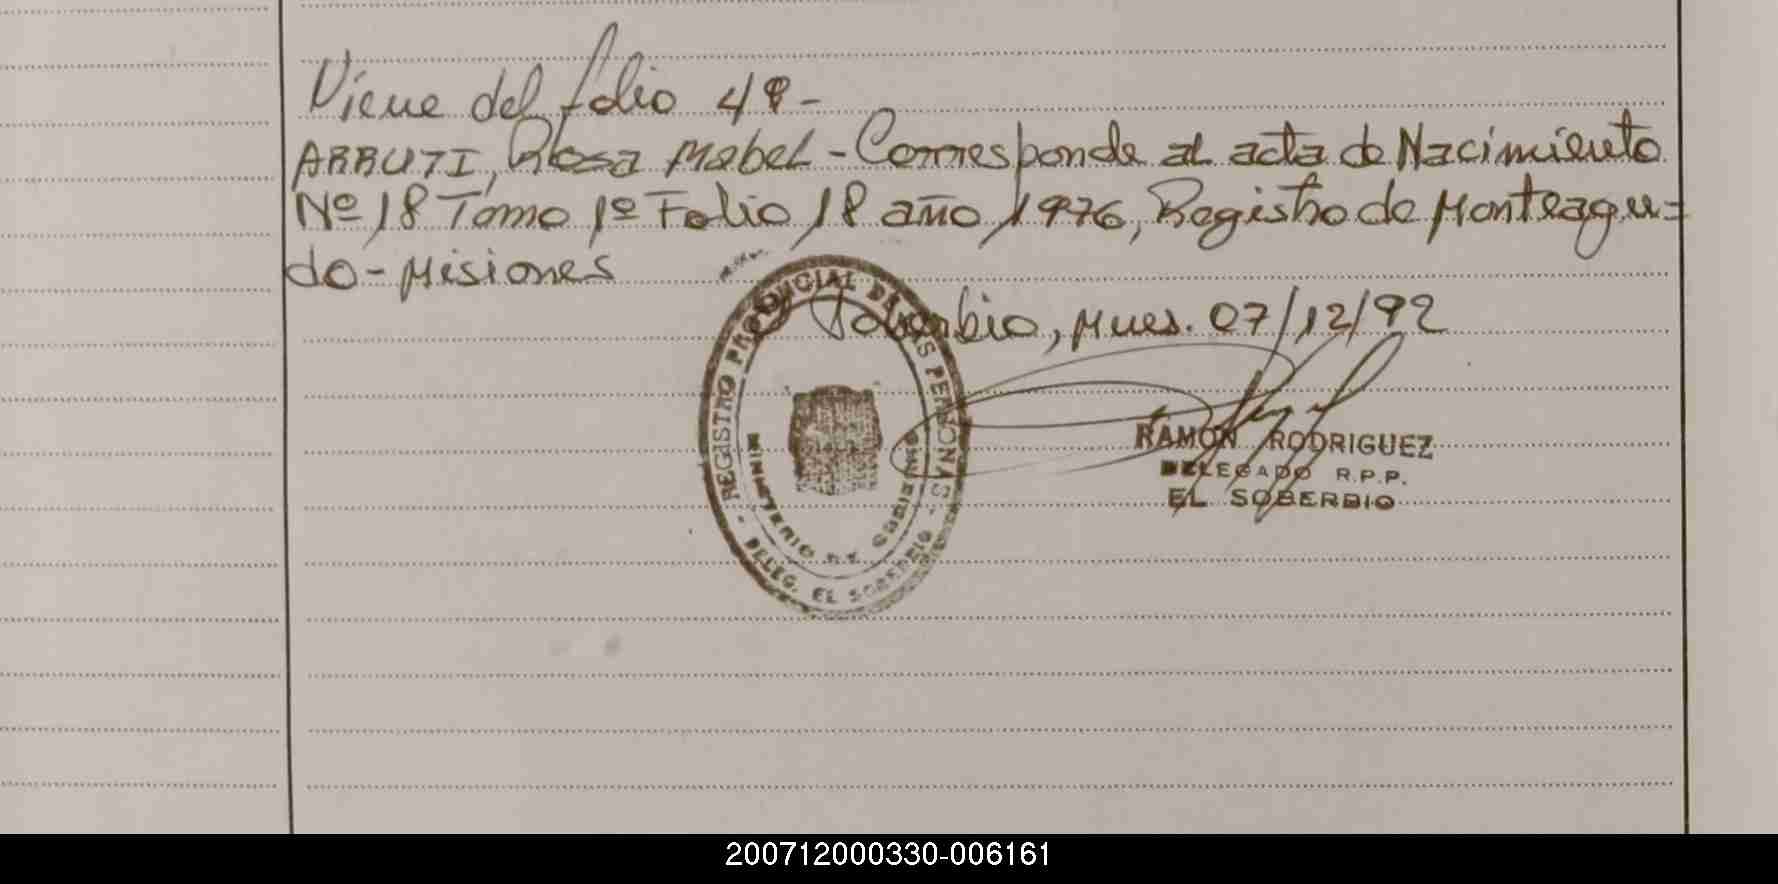 Viene del folio 48-
ARRUTI, Rosa Mabel - Corresponde al acta de Nacimiento
Nº 18 Tomo 1º Folio 18 año 1976, Registro de Monteagu=
do - Misiones
Soberbio, Mnes. 07/12/92
REGISTRO PROVINCIAL DE LAS PERSONAS
MINISTERIO DE GOBIERNO
- DELEG. EL SOBERBIO -
RAMON RODRIGUEZ
DELEGADO R.P.P.
EL SOBERBIO
200712000330-006161